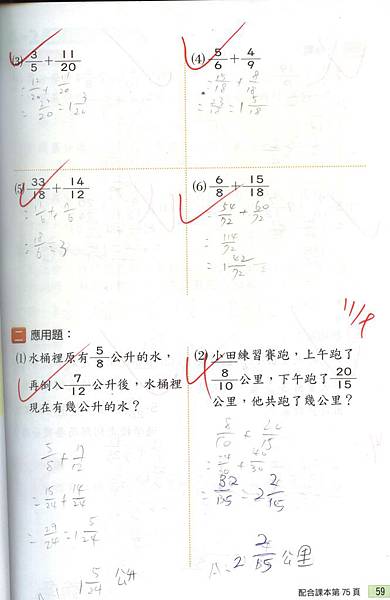 (3) 3/5 + 11/20
= 12/20 + 11/20
= 23/20 = 1 3/20
(4) 5/6 + 4/9
= 15/18 + 8/18
= 23/18 = 1 5/18
(5) 33/18 + 14/12
= 11/6 + 7/6
= 18/6 = 3
(6) 6/8 + 15/18
= 54/72 + 60/72
= 114/72
= 1 42/72
11/9
二 應用題：
(1) 水桶裡原有 5/8 公升的水，
再倒入 7/12 公升後，水桶裡
現在有幾公升的水？
5/8 + 7/12
= 15/24 + 14/24
= 29/24 = 1 5/24
A= 1 5/24 公升
(2) 小田練習賽跑，上午跑了
8/10 公里，下午跑了 20/15
公里，他共跑了幾公里？
8/10 + 20/15
= 24/30 + 40/30
= 32/15 = 2 2/15
A= 2 2/15 公里
配合課本第 75 頁 59